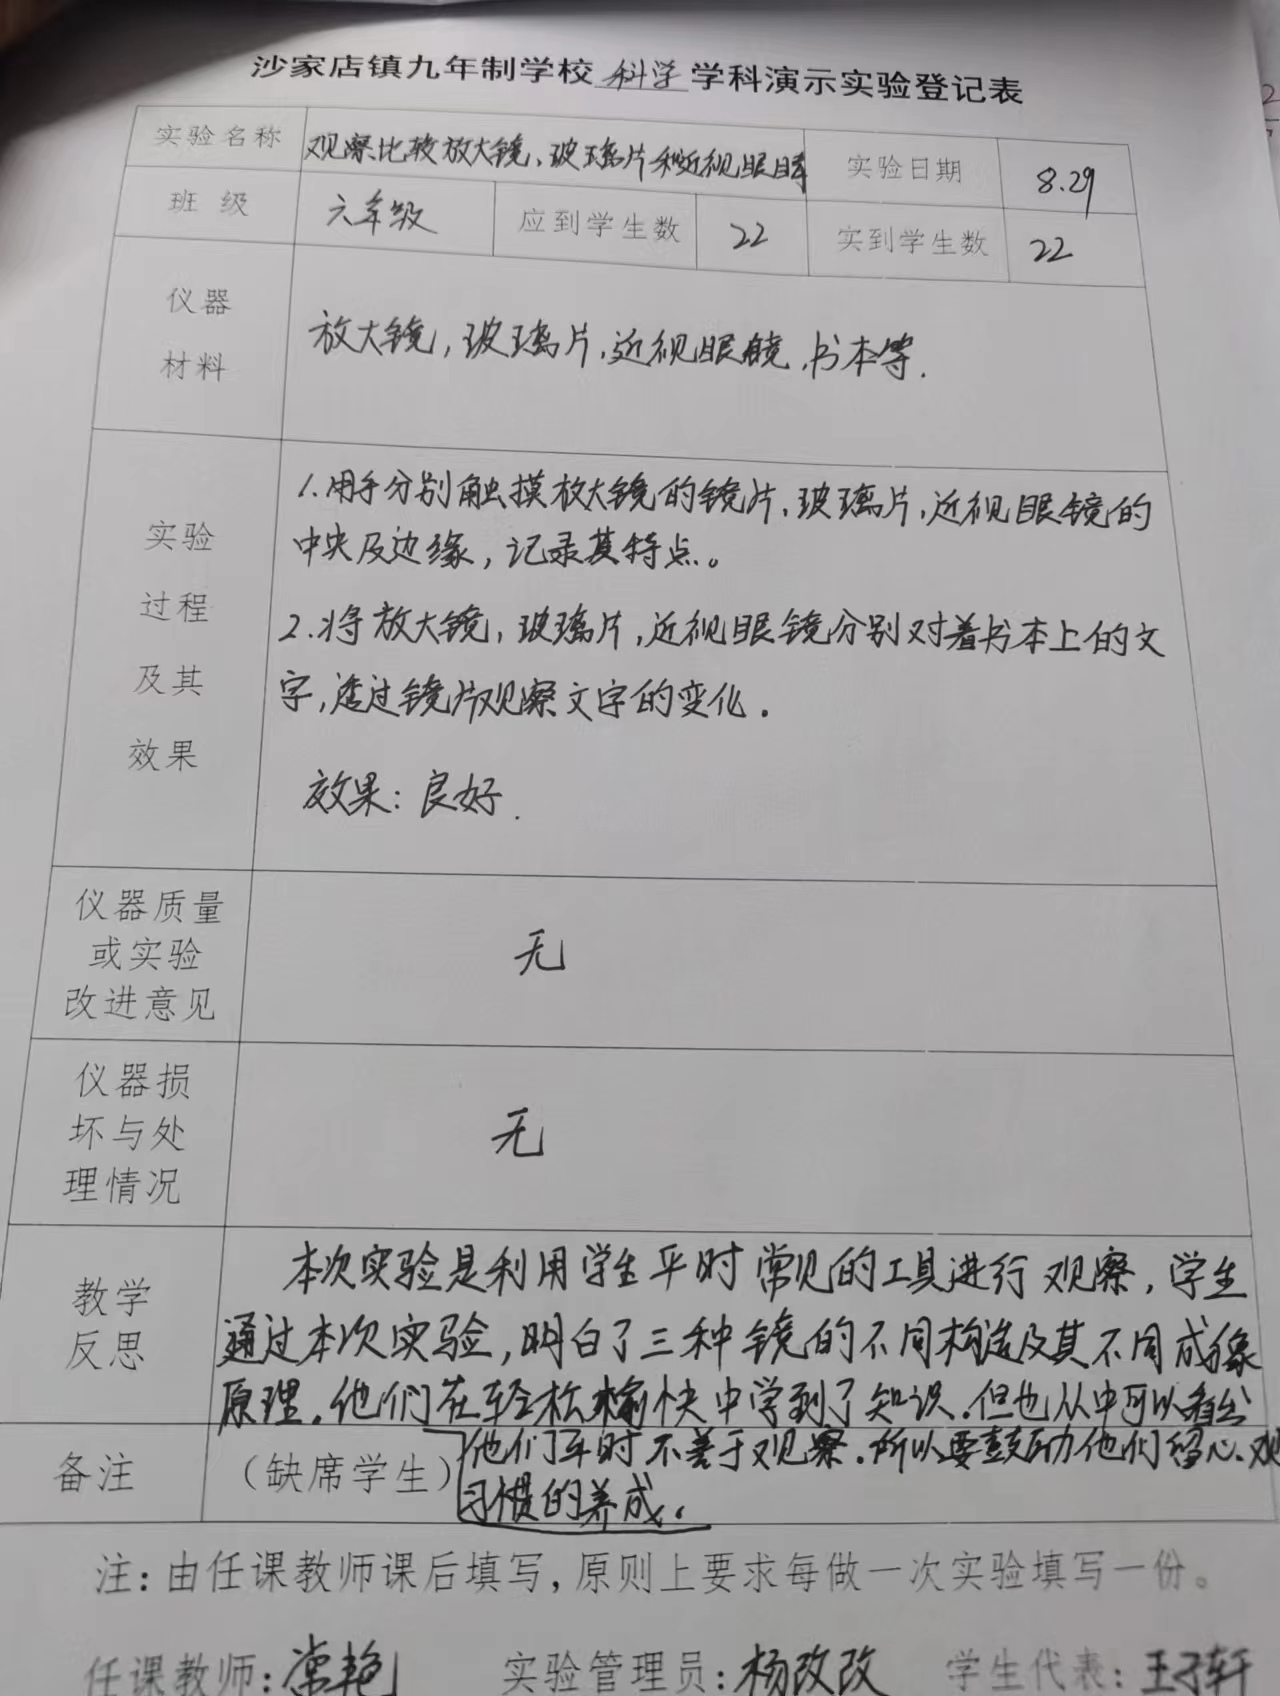 沙家店镇九年制学校科学学科演示实验登记表
实验名称 观察比较放大镜、玻璃片和近视眼睛 实验日期 8.29
班 级 六年级 应到学生数 22 实到学生数 22
仪器
材料
放大镜,玻璃片,近视眼镜、书本等.
实验
过程
及其
效果
1.用手分别触摸放大镜的镜片、玻璃片,近视眼镜的
中央及边缘,记录其特点。
2.将放大镜,玻璃片,近视眼镜分别对着书本上的文
字,透过镜片观察文字的变化.
效果:良好.
仪器质量
或实验
改进意见
无
仪器损
坏与处
理情况
无
教学
反思
本次实验是利用学生平时常见的工具进行观察,学生
通过本次实验,明白了三种镜的不同构造及其不同成像
原理.他们在轻松愉快中学到了知识.但也从中可以看出
他们平时不善于观察.所以要鼓励他们留心.观
习惯的养成.
备注 (缺席学生)
注:由任课教师课后填写,原则上要求每做一次实验填写一份。
任课教师:常艳 实验管理员:杨改改 学生代表:王子轩